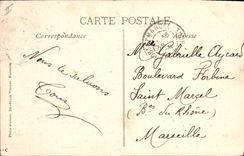 CARTE POSTALE
Correspondance
Adresse
Nous te saluons
Tous
Melle Gabrielle Aycard
Boulevard Forbine
Saint Marcel
(Bes du Rhône)
Marseille